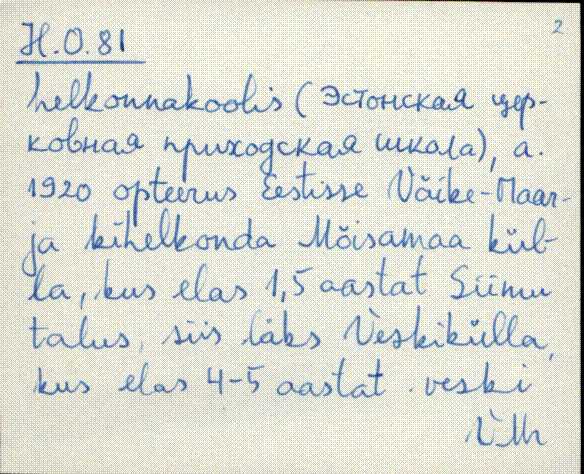 2
H.O.81
helkonnakoolis (Эстонская цер-
ковная приходская школа), a.
1920 opteerus Eestisse Väike-Maar-
ja kihelkonda Mõisamaa kül-
la, kus elas 1,5 aastat Siimu
talus, siis läks Veskikülla,
kus elas 4-5 aastat veski